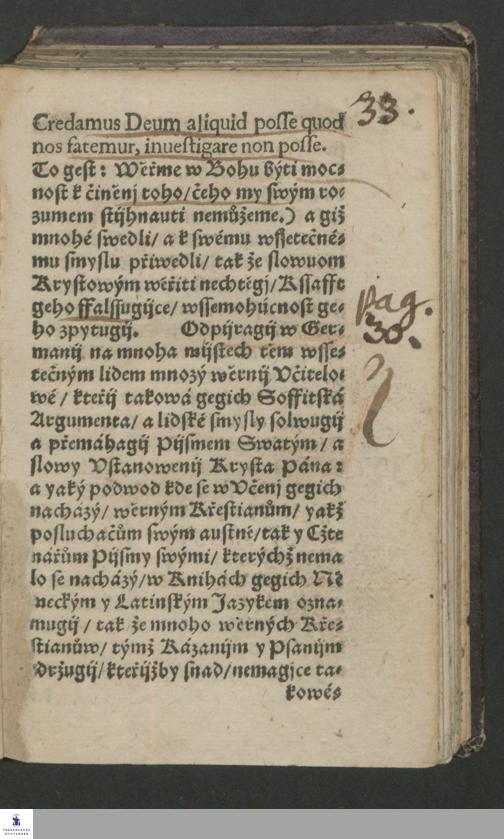 33.
Credamus Deum aliquid posse quod
nos fatemur, inuestigare non posse.
To gest: Wěřme w Bohu býti moc⸗
nost k činěnj toho/čeho my swým ro⸗
zumem stijhnauti nemůžeme.) a giž
mnohé swedli/ a k swému wssetečné⸗
mu smyslu přiwedli/ tak že slowuom
Krystowým wěřiti nechtěgj/Kssafft
geho ffalssugijce/ wssemohúcnost ge⸗
ho zpytugij. Odpijragij w Ger⸗
manij na mnoha mijstech těm wsse⸗
tečným lidem mnozý wěrnij Včitelo⸗
wé/ kteřij takowá gegich Soffitská
Argumenta/ a lidské smysly solwugij
a přemáhagij Pijsmem Swatým/ a
slowy Vstanowenij Krysta Pána:
a yaký podwod kde se w Včenj gegich
nacházý/ wěrným Křestianům/ yakž
posluchačům swým austně/tak y Cžte
nářům Pijsmy swými/ kterýchž nema
lo se nacházý/w Knihách gegich Ně
meckým y Latinským Jazykem ozna⸗
mugij/ tak že mnoho wěrných Kře⸗
stianůw/ týmž Kázanijm y Psanijm
držugij/kteřijžby snad/nemagjce ta⸗
kowés
pag.
30.
FRANCKESCHE
STIFTUNGEN